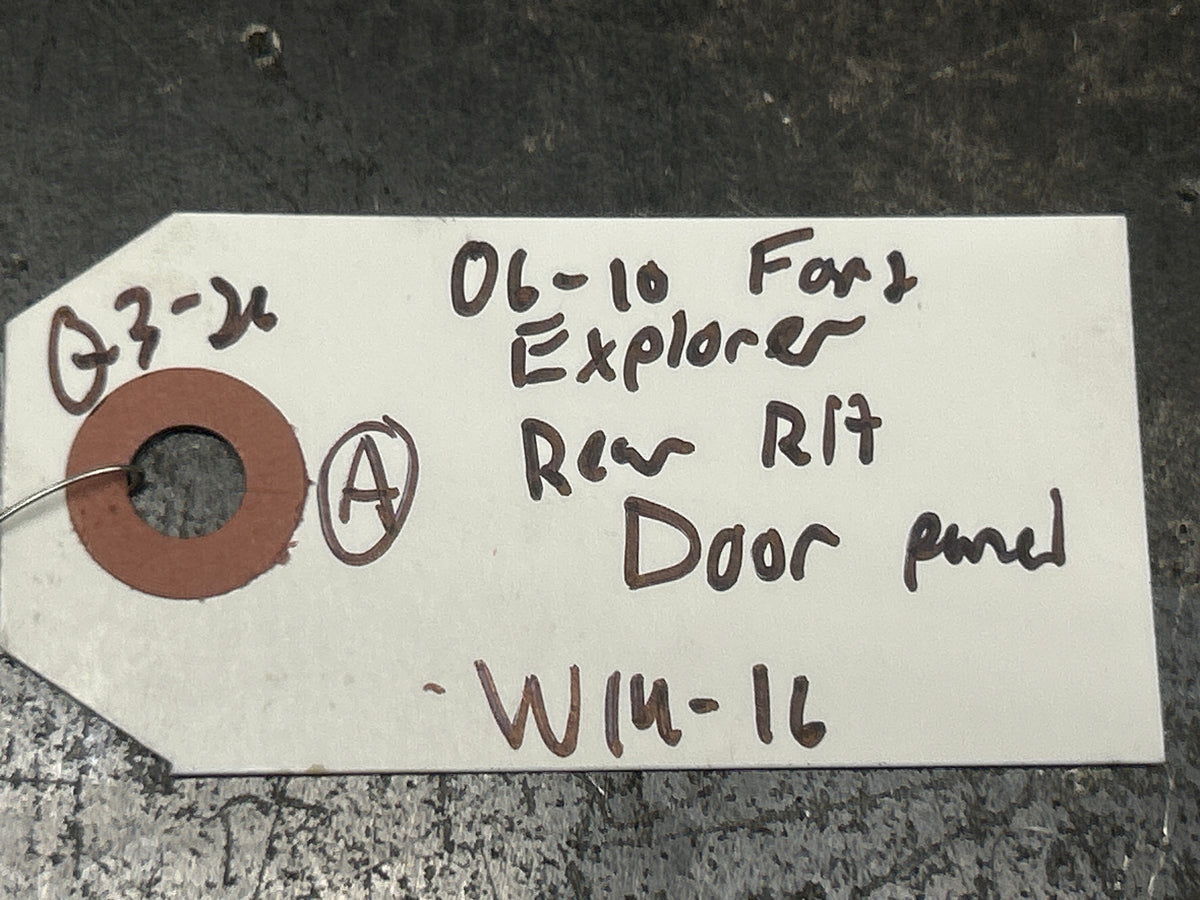 06-10 Ford
Explorer
Rear R/H
Door panel
A
W14-16